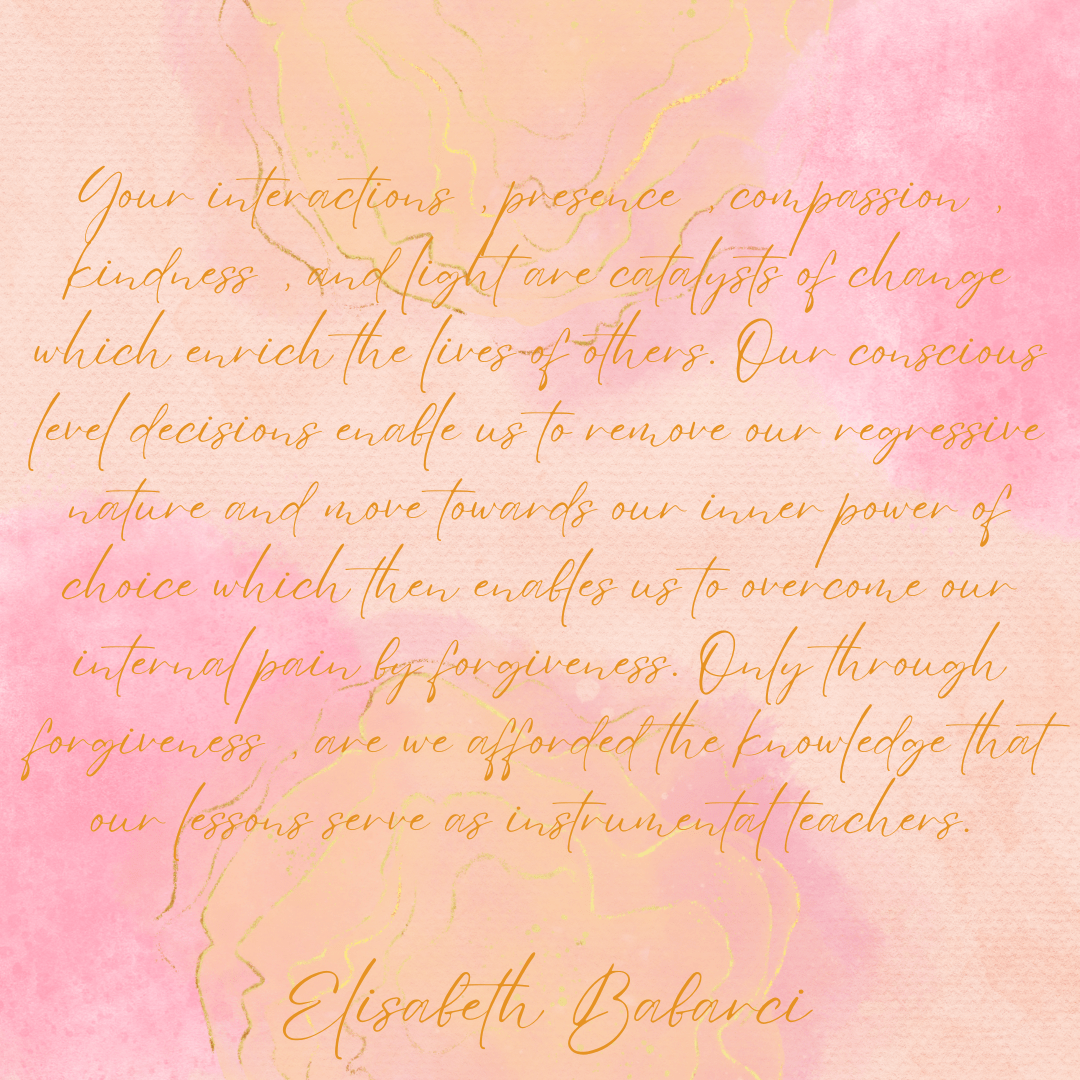 Your interactions , presence , compassion ,
kindness , and light are catalysts of change
which enrich the lives of others. Our conscious
level decisions enable us to remove our regressive
nature and move towards our inner power of
choice which then enables us to overcome our
internal pain by forgiveness. Only through
forgiveness , are we afforded the knowledge that
our lessons serve as instrumental teachers.
Elisabeth Babarci